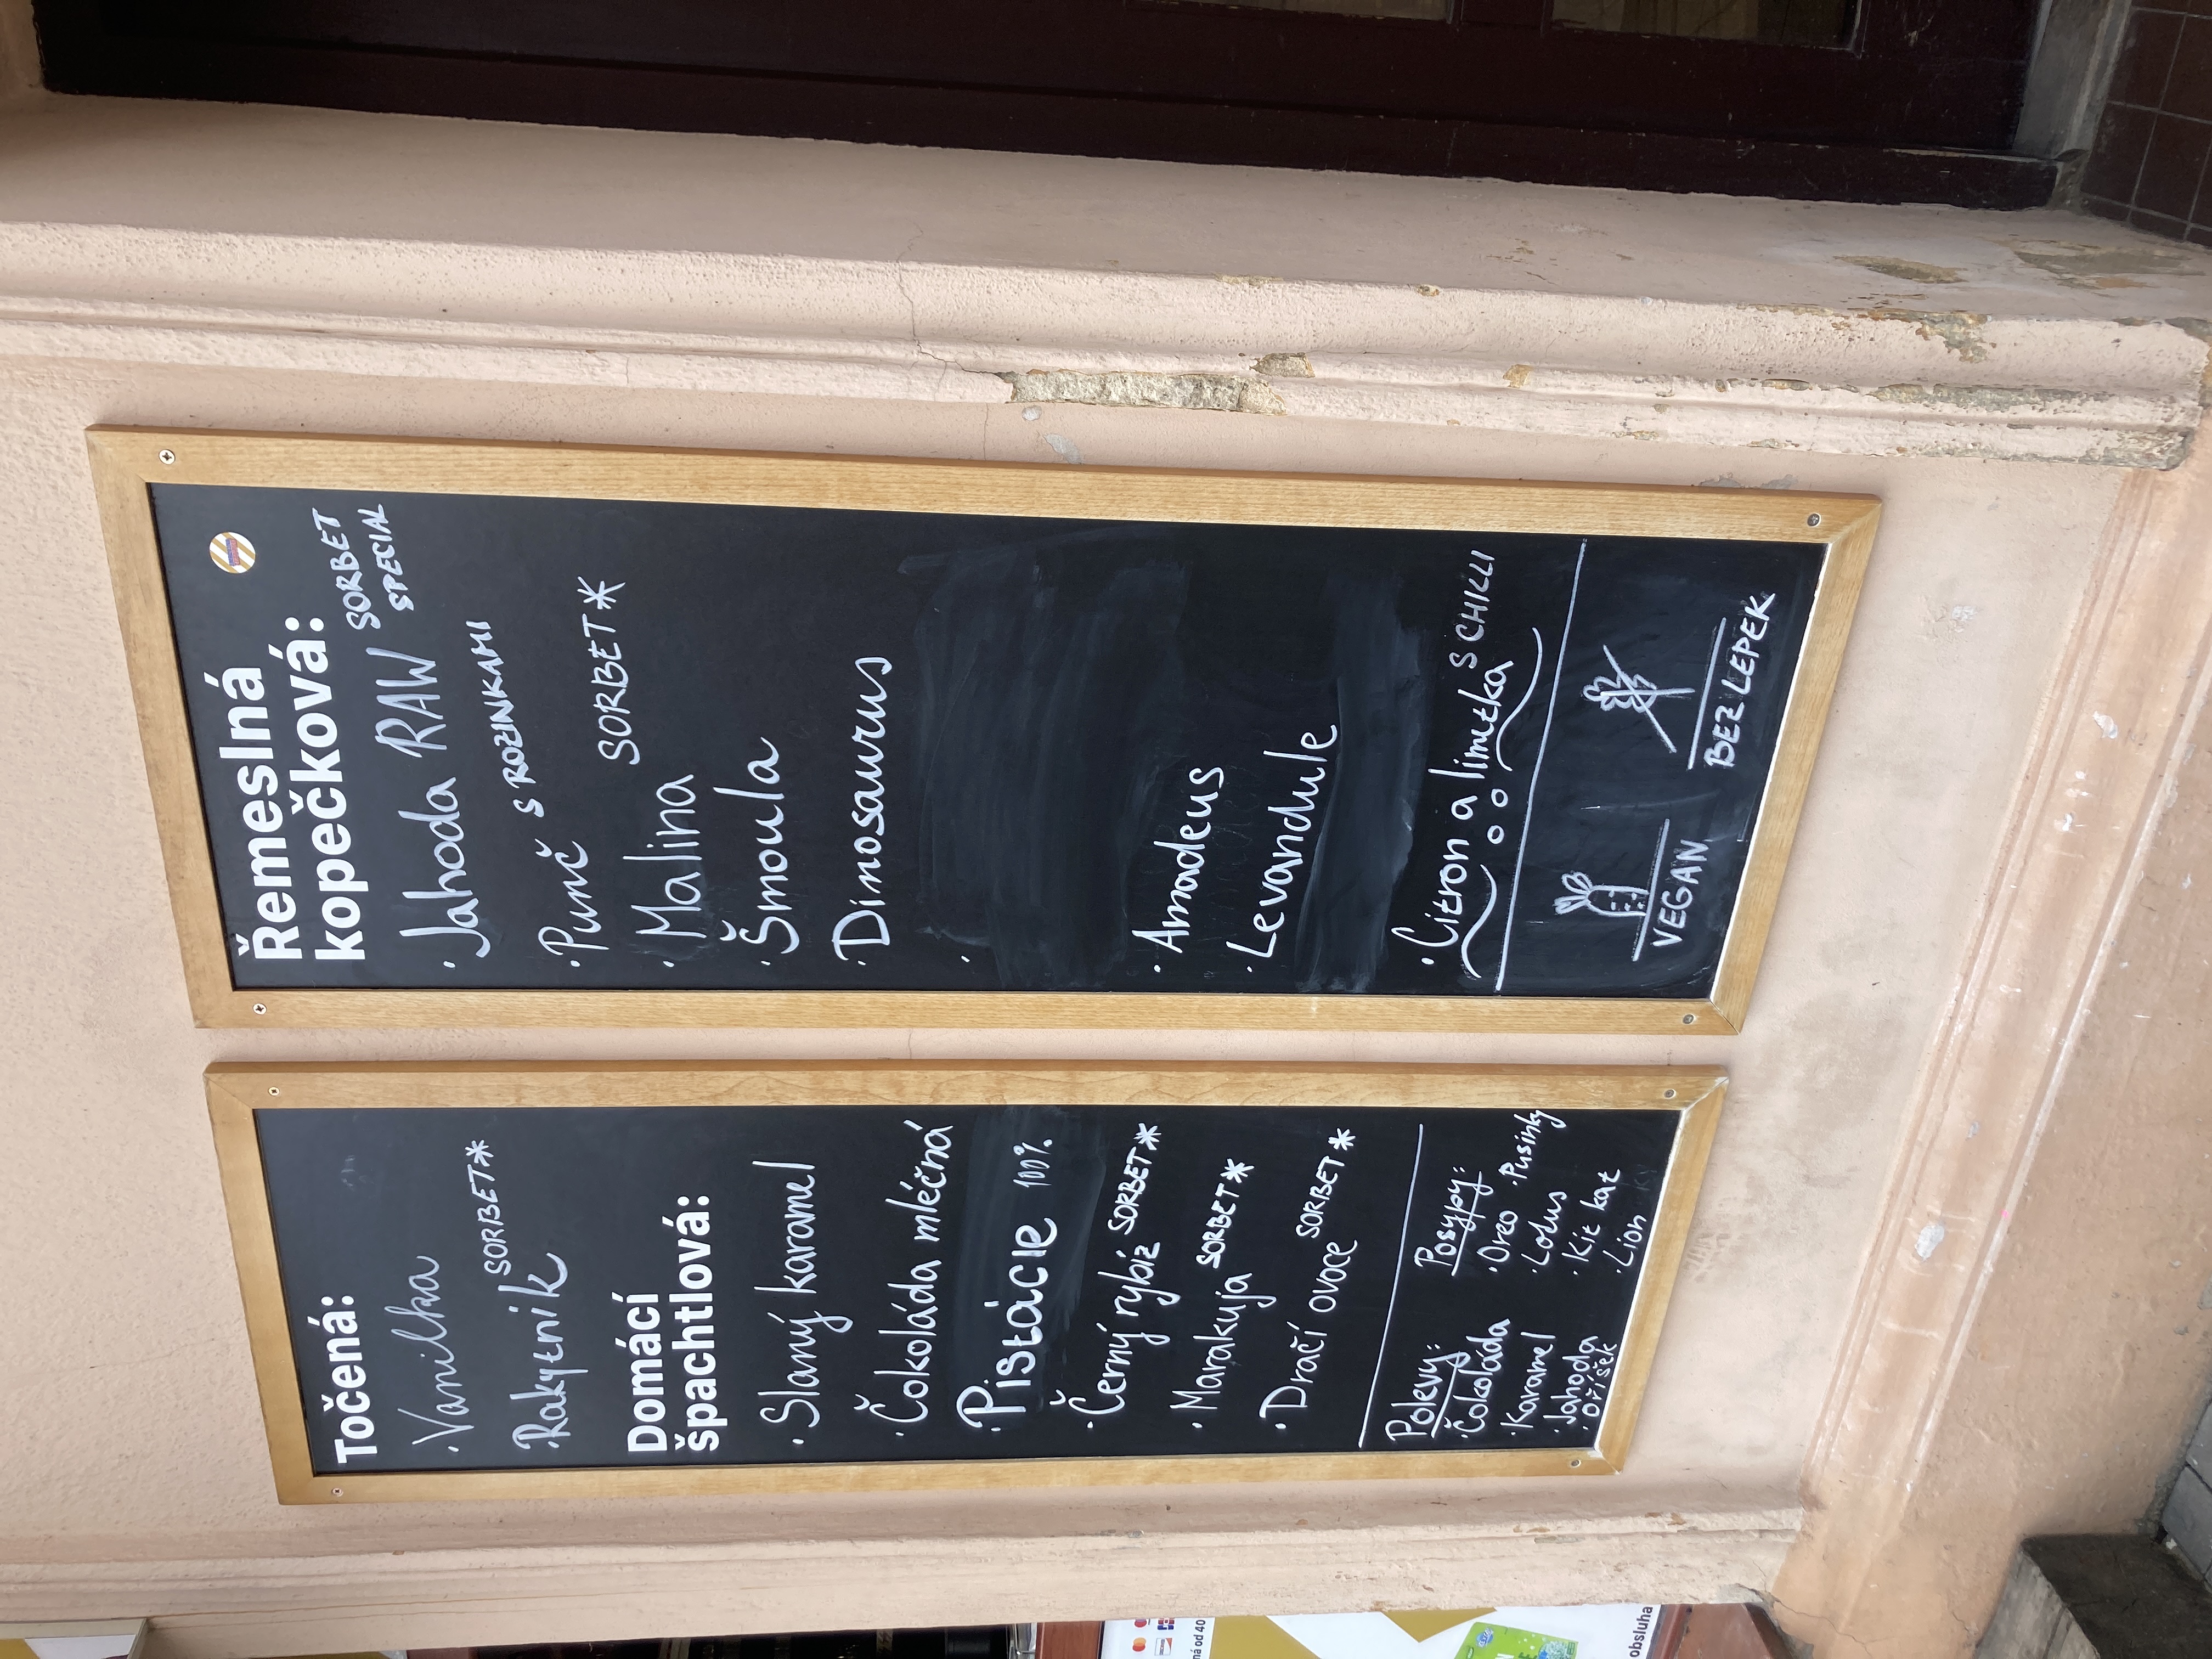 Točená:
· Vanilka
SORBET*
· Rakytník
Domácí
špachtlová:
· Slaný karamel
· Čokoláda mléčná
· Pistácie 100%
· Černý rybíz SORBET*
· Marakuja SORBET*
· Dračí ovoce SORBET*
Polevy:
· Čokoláda
· Karamel
· Jahoda
· Oříšek
Posypy:
· Oreo · Pusinky
· Lotus
· Kit kat
· Lion
Řemeslná
kopečková:
· Jahoda RAW SORBET
SPECIAL
· Punč S ROZINKAMI
· Malina SORBET*
· Šmoula
· Dinosaurus
·
· Amadeus
· Levandule
· Citron a limetka S CHILLI
VEGAN
BEZ LEPEK
ná od 40
obsluha